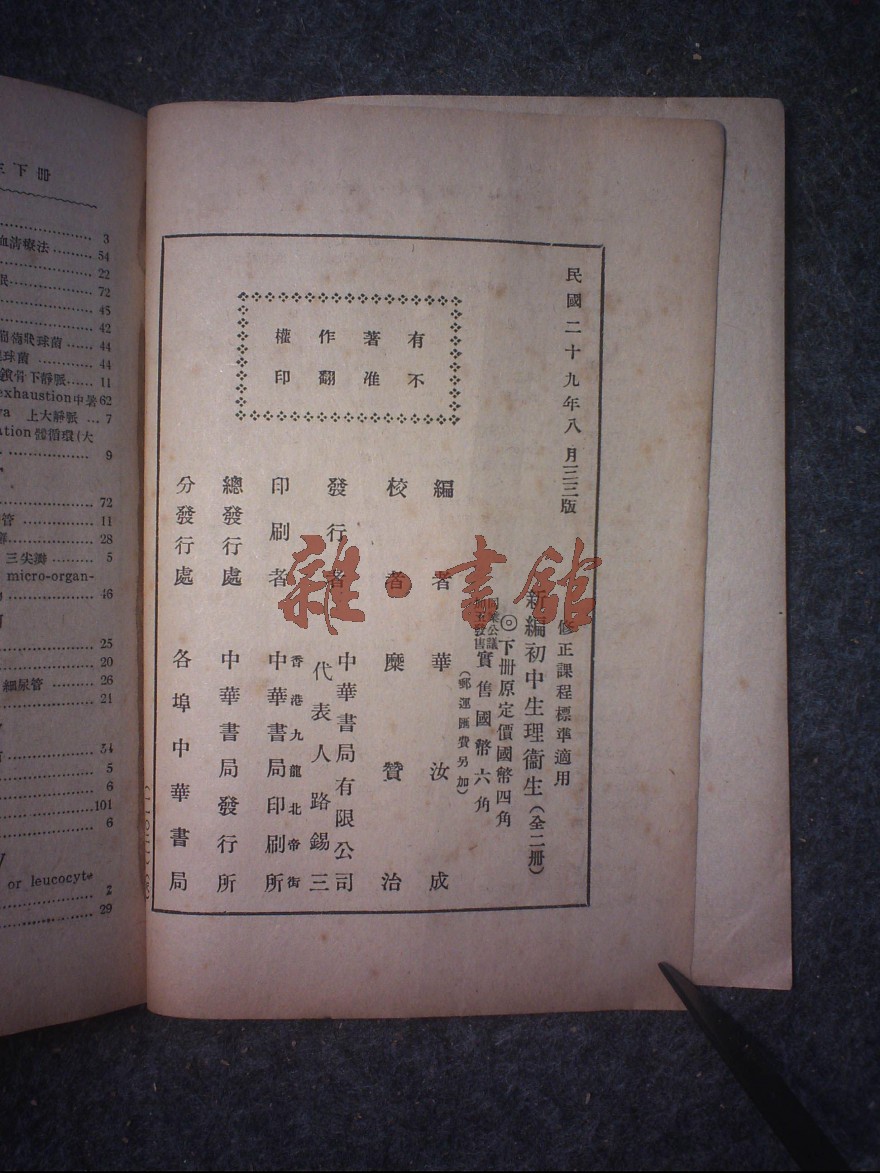 民國二十九年八月三三版
修正課程標準適用
新編初中生理衞生(全二冊)
◎下冊原定價國幣四角
同業公議
實售國幣六角
(郵運匯費另加)
編者華汝成
校者糜贊治
有不
著准
作翻
權印
發行者
中華書局有限公司
代表人路錫三
印刷者
香港九龍北帝街
中華書局印刷所
總發行處 中華書局發行所
分發行處 各埠中華書局
雜·書館
下冊
3
血清療法 54
22
72
45
42
狀球菌 44
球菌 44
鎖骨下靜脈 11
exhaustion中暑 62
上大靜脈 7
ation 體循環(大
9
72
管 11
28
三尖瓣 5
micro-organ-
46
25
20
細尿管 26
21
54
5
6
101
6
or leucocyte
2
29